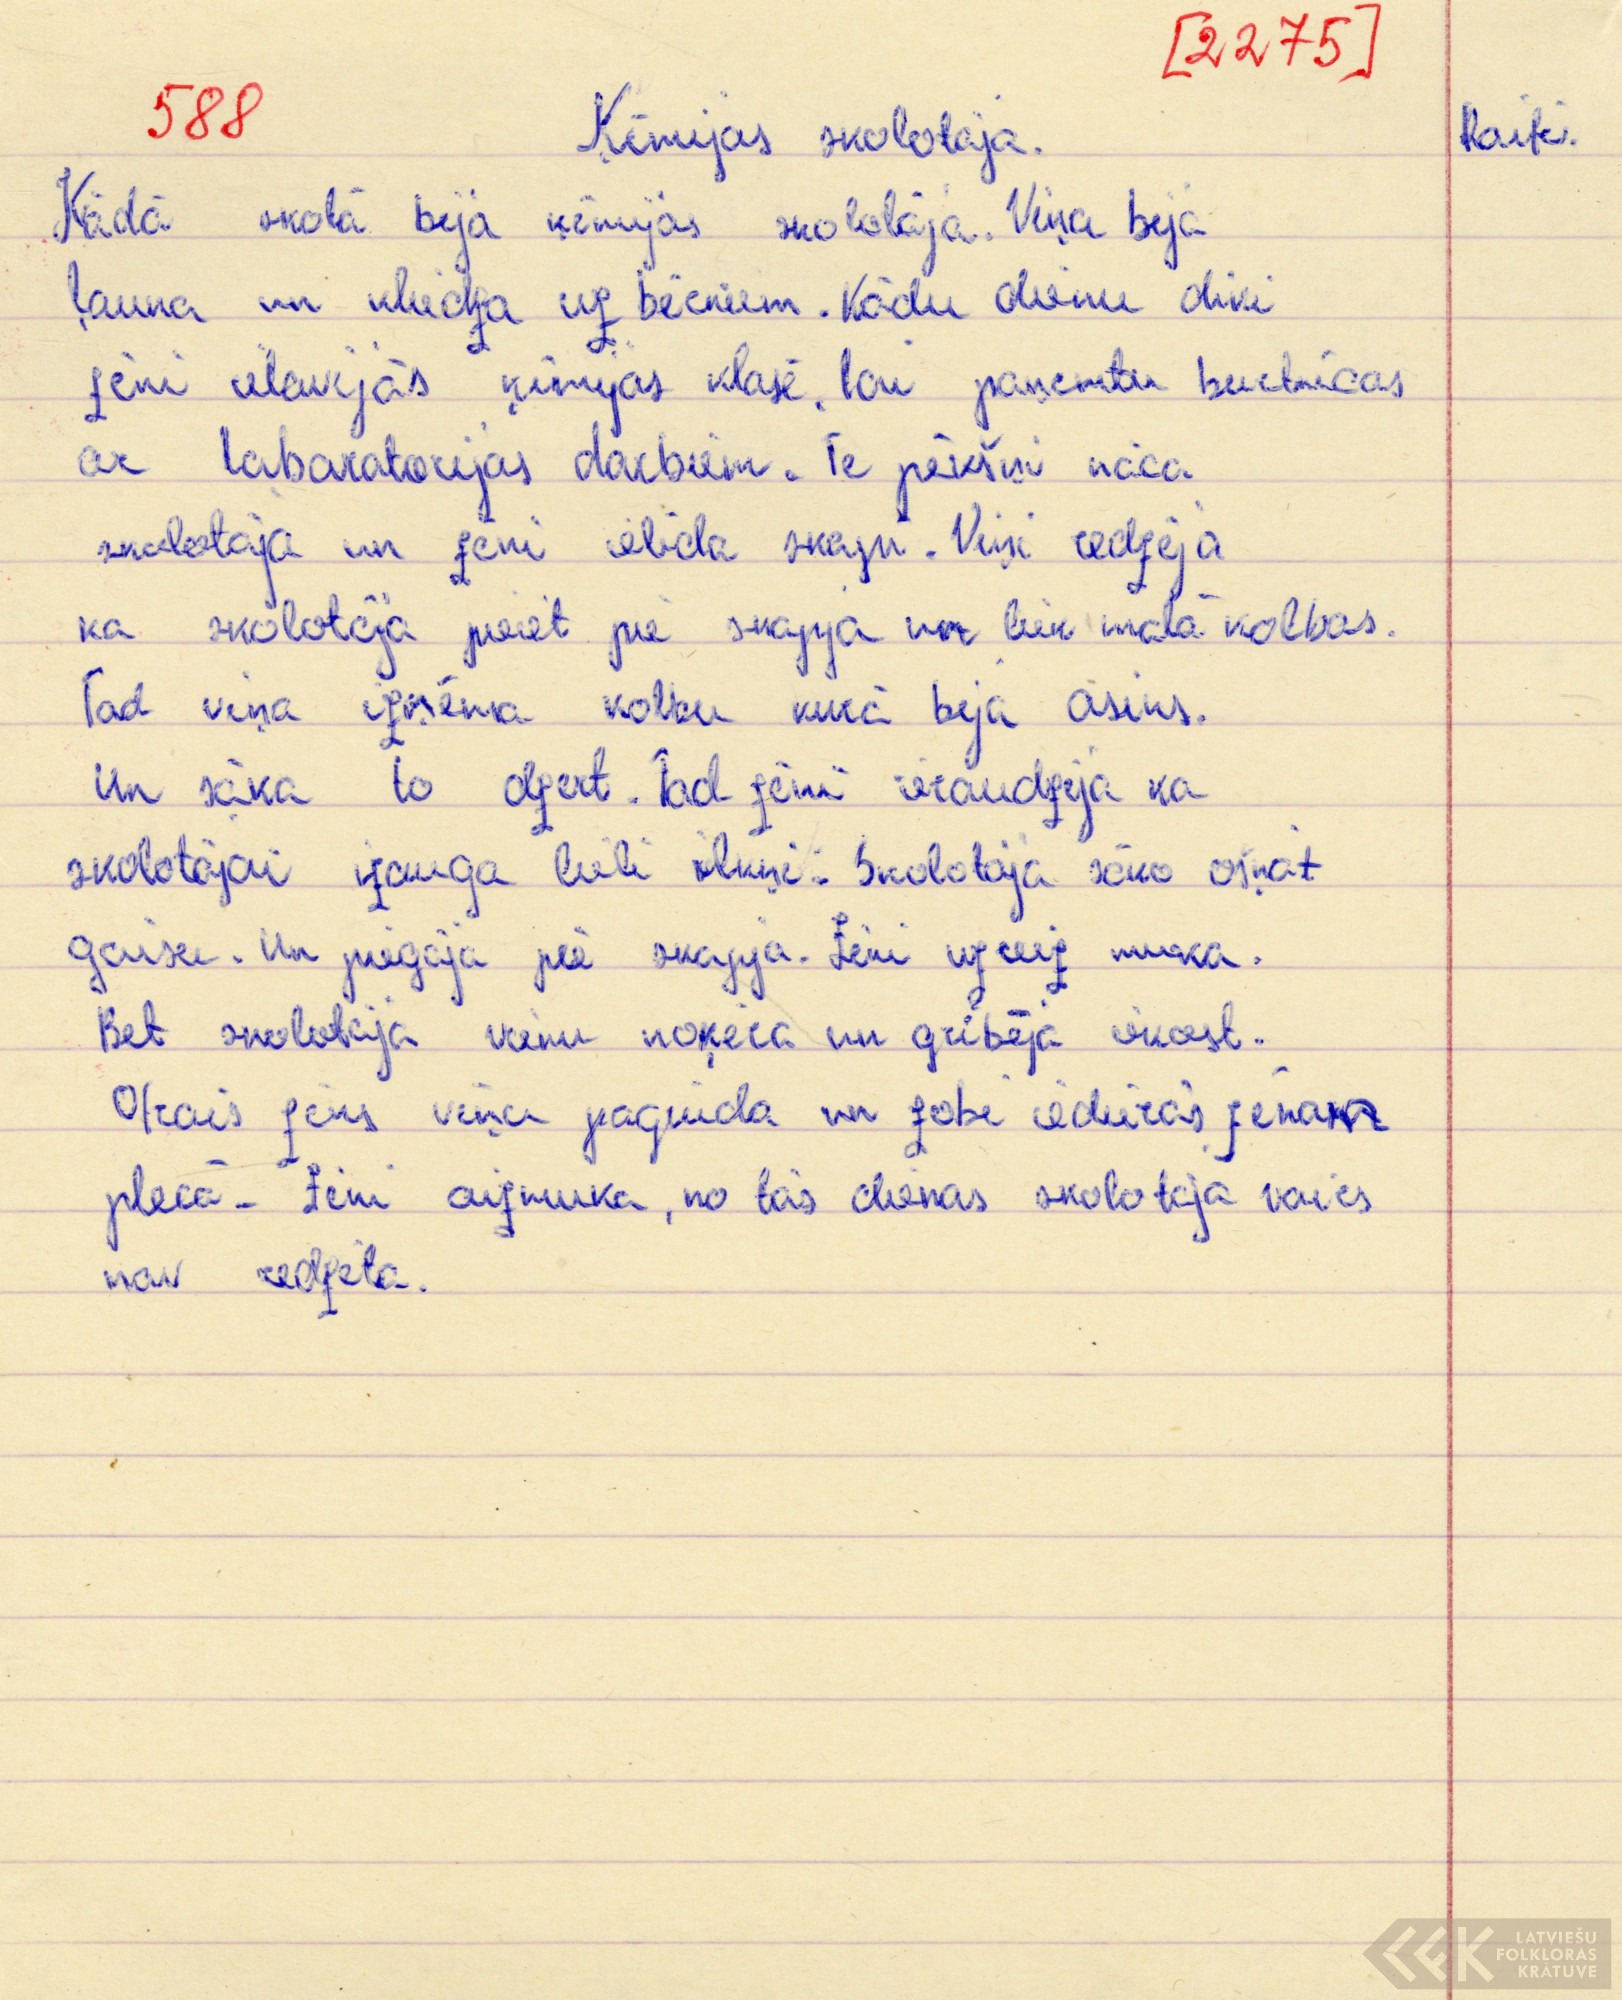 [2275]
588
Ķīmijas skolotāja.
Kādā skolā bija ķīmijas skolotāja. Viņa bija
ļauna un kliedza uz bērniem. Kādu dienu divi
zēni ielavijās ķīmijas klasē, lai paņemtu burtnīcas
ar labaratorijas darbiem. Te pēkšņi nāca
skolotāja un zēni ielīda skapī. Viņi redzēja
ka skolotāja pieiet pie skapja un liek malā kolbas.
Tad viņa izņēma kolbu kurā bija asins.
Un sāka to dzert. Tad zēni ieraudzīja ka
skolotājai izauga lieli ilkņi. Skolotāja sāka ošņāt
gaisu. Un piegāja pie skapja. Zēni uzreiz muka.
Bet skolotāja vienu noķēra un gribēja iekost.
Otrais zēns viņu pagrūda un zobi iedūrās zēnam
plecā. Zēni aizmuka, no tās dienas skolotāja vairs
nav redzēta.
LATVIEŠU
FOLKLORAS
KRĀTUVE